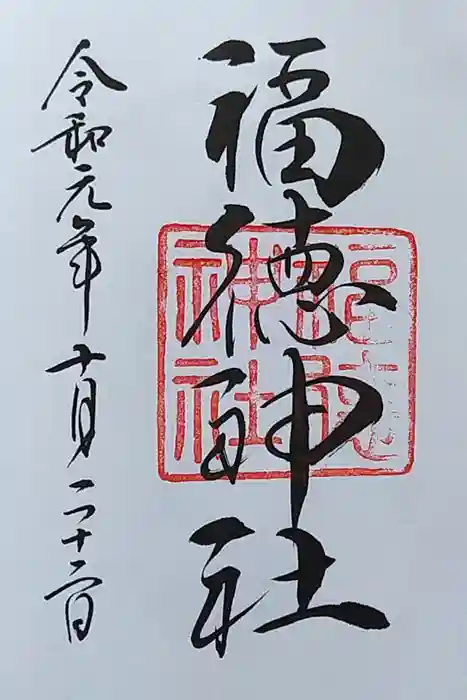 福徳神社
令和元年十月二十二日
福徳
神社